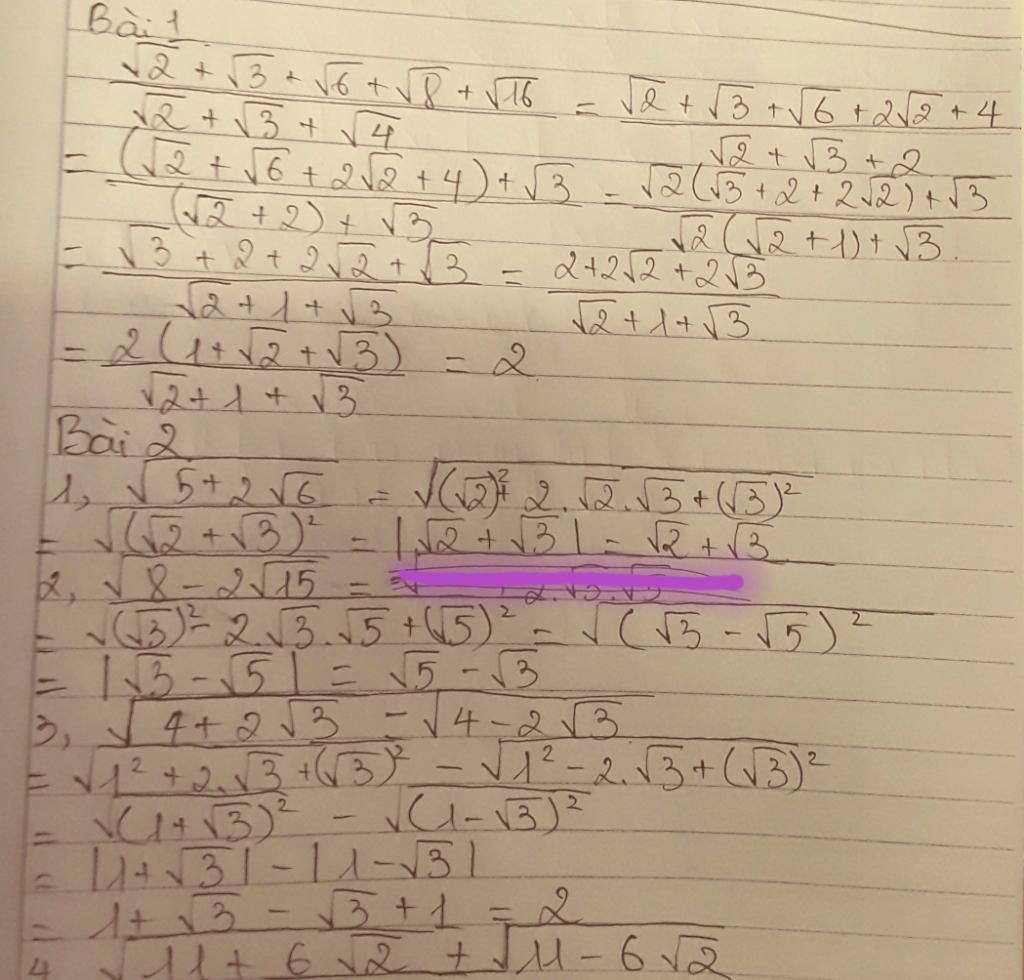 Bài 1
(√2 + √3 + √6 + √8 + √16)/(√2 + √3 + √4) = (√2 + √3 + √6 + 2√2 + 4)/(√2 + √3 + 2)
= ((√2 + √6 + 2√2 + 4) + √3)/((√2 + 2) + √3) = (√2(√3 + 2 + 2√2) + √3)/(√2(√2 + 1) + √3.)
= (√3 + 2 + 2√2 + √3)/(√2 + 1 + √3) = (2 + 2√2 + 2√3)/(√2 + 1 + √3)
= (2(1 + √2 + √3))/(√2 + 1 + √3) = 2
Bài 2
1, √(5 + 2√6) = √((√2)² + 2.√2.√3 + (√3)²)
= √((√2 + √3)²) = |√2 + √3| = √2 + √3
2, √(8 - 2√15) =
= √((√3)² - 2.√3.√5 + (√5)²) = √((√3 - √5)²)
= |√3 - √5| = √5 - √3
3, √(4 + 2√3) - √(4 - 2√3)
= √(1² + 2.√3 + (√3)²) - √(1² - 2.√3 + (√3)²)
= √((1 + √3)²) - √((1 - √3)²)
= |1 + √3| - |1 - √3|
= 1 + √3 - √3 + 1 = 2
4 √(11 + 6√2) + √(11 - 6√2)